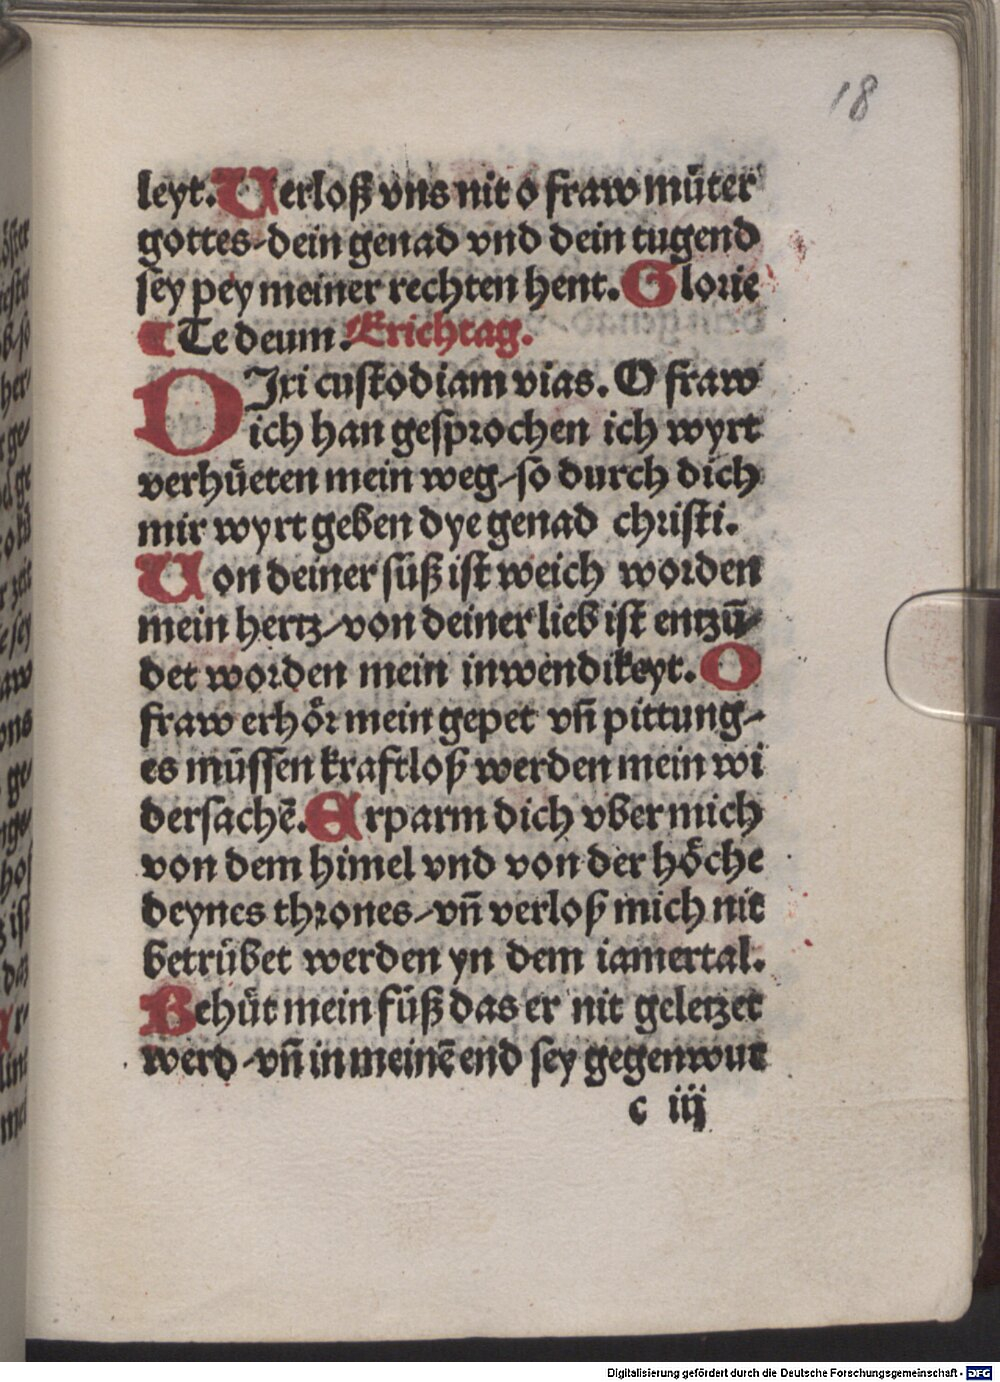 18
leyt. Verloß vns nit o fraw můter
gottes-dein genad vnd dein tugend
sey pey meiner rechten hent. Glorie
¶ Te deum. Erichtag.
DIxi custodiam vias. O fraw
ich han gesprochen ich wyrt
verhüeten mein weg-so durch dich
mir wyrt geben dye genad christi.
Von deiner süß ist weich worden
mein hertz-von deiner lieb ist entzü-
det worden mein inwendikeyt. O
fraw erhőr mein gepet vñ pittung-
es müssen kraftloß werden mein wi
dersachē. Erparm dich vber mich
von dem himel vnd von der hőche
deynes thrones-vñ verloß mich nit
betrübet werden yn dem iamertal.
Behüt mein füß das er nit geletzet
werd-vñ in meinē end sey gegenwut
c iij
Digitalisierung gefördert durch die Deutsche Forschungsgemeinschaft - DFG